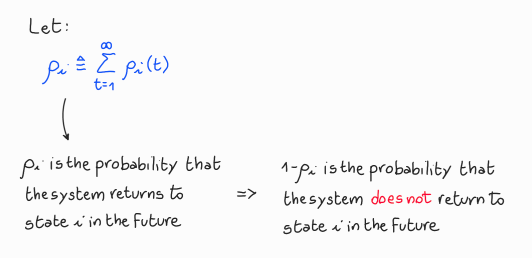 Let:
ρᵢ ≜ ∞∑t=1 ρᵢ(t)
ρᵢ is the probability that
the system returns to
state i in the future
=>
1-ρᵢ is the probability that
the system does not return to
state i in the future